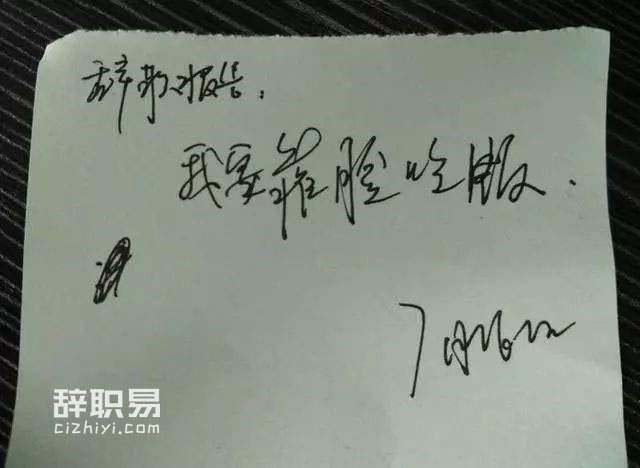 辞职报告:
我要靠脸吃饭.
辞职易
cizhiyi.com